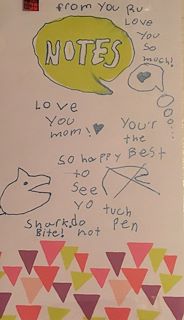 from You Ru
Love
You
So
much!
NOTES
Love
You
mom!
You'r
the
Best
so happy
to
see
yo
tuch
Shark do
Bite! not
Pen